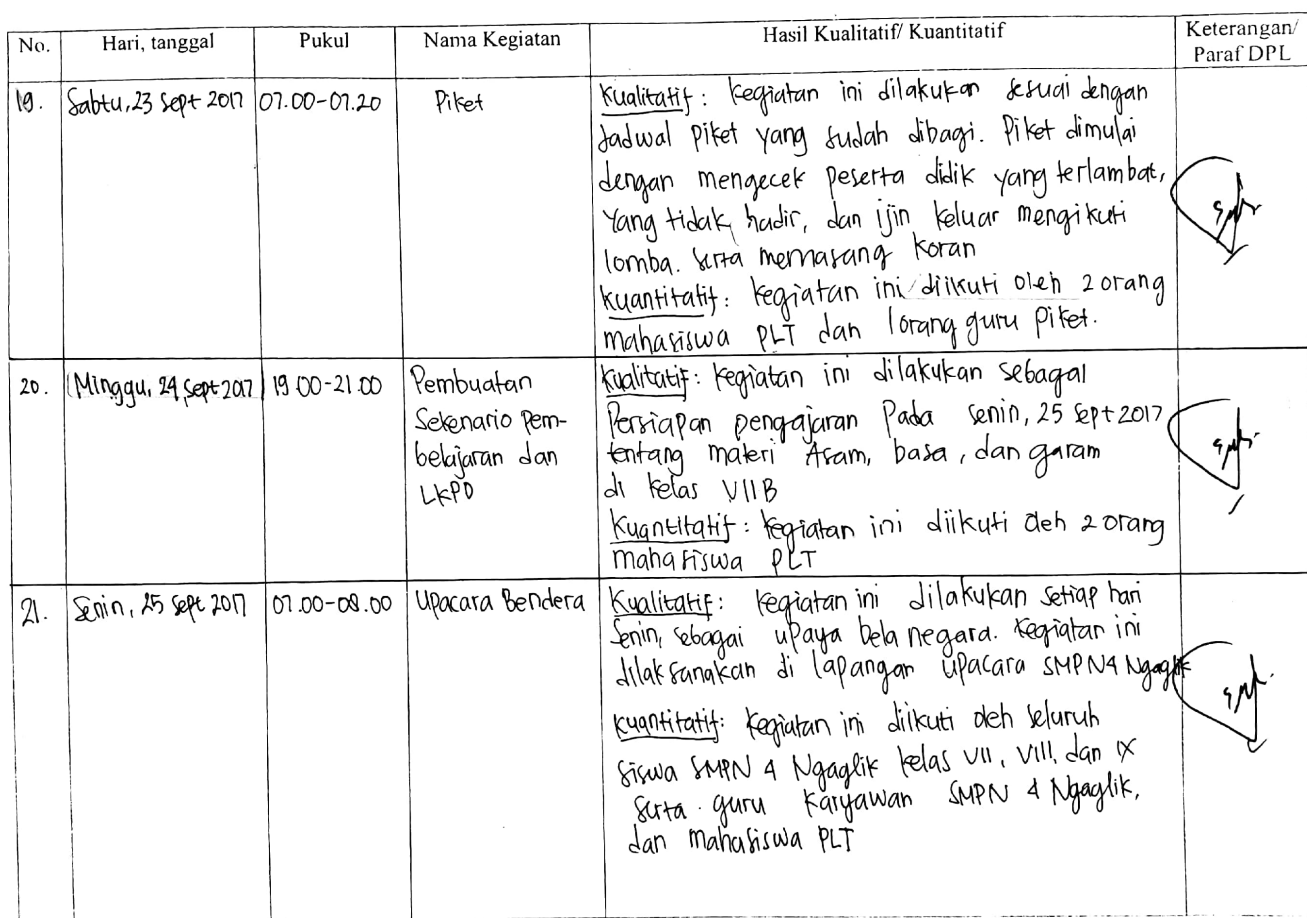 No. Hari, tanggal Pukul Nama Kegiatan Hasil Kualitatif/ Kuantitatif Keterangan/
Paraf DPL
19. Sabtu, 23 Sept 2017 07.00-07.20 Piket Kualitatif: kegiatan ini dilakukan sesuai dengan
Jadwal Piket yang sudah dibagi. Piket dimulai
dengan mengecek peserta didik yang terlambat,
yang tidak hadir, dan ijin keluar mengikuti
lomba. serta memasang koran
Kuantitatif: kegiatan ini diikuti oleh 2 orang
mahasiswa PLT dan 1 orang guru Piket.
20. Minggu, 24 Sept 2017 19.00-21.00 Pembuatan Kualitatif: kegiatan ini dilakukan sebagai
Sekenario Pem- Persiapan pengajaran Pada Senin, 25 Sept 2017
belajaran dan tentang materi Asam, basa, dan garam
LKPD di kelas VIIB
Kuantitatif: kegiatan ini diikuti oleh 2 orang
mahasiswa PLT
21. Senin, 25 Sept 2017 07.00-08.00 Upacara Bendera Kualitatif: kegiatan ini dilakukan setiap hari
Senin, sebagai upaya bela negara. Kegiatan ini
dilaksanakan di lapangan upacara SMPN4 Ngaglik
Kuantitatif: kegiatan ini diikuti oleh seluruh
siswa SMPN 4 Ngaglik kelas VII, VIII, dan IX
serta guru karyawan SMPN 4 Ngaglik,
dan mahasiswa PLT